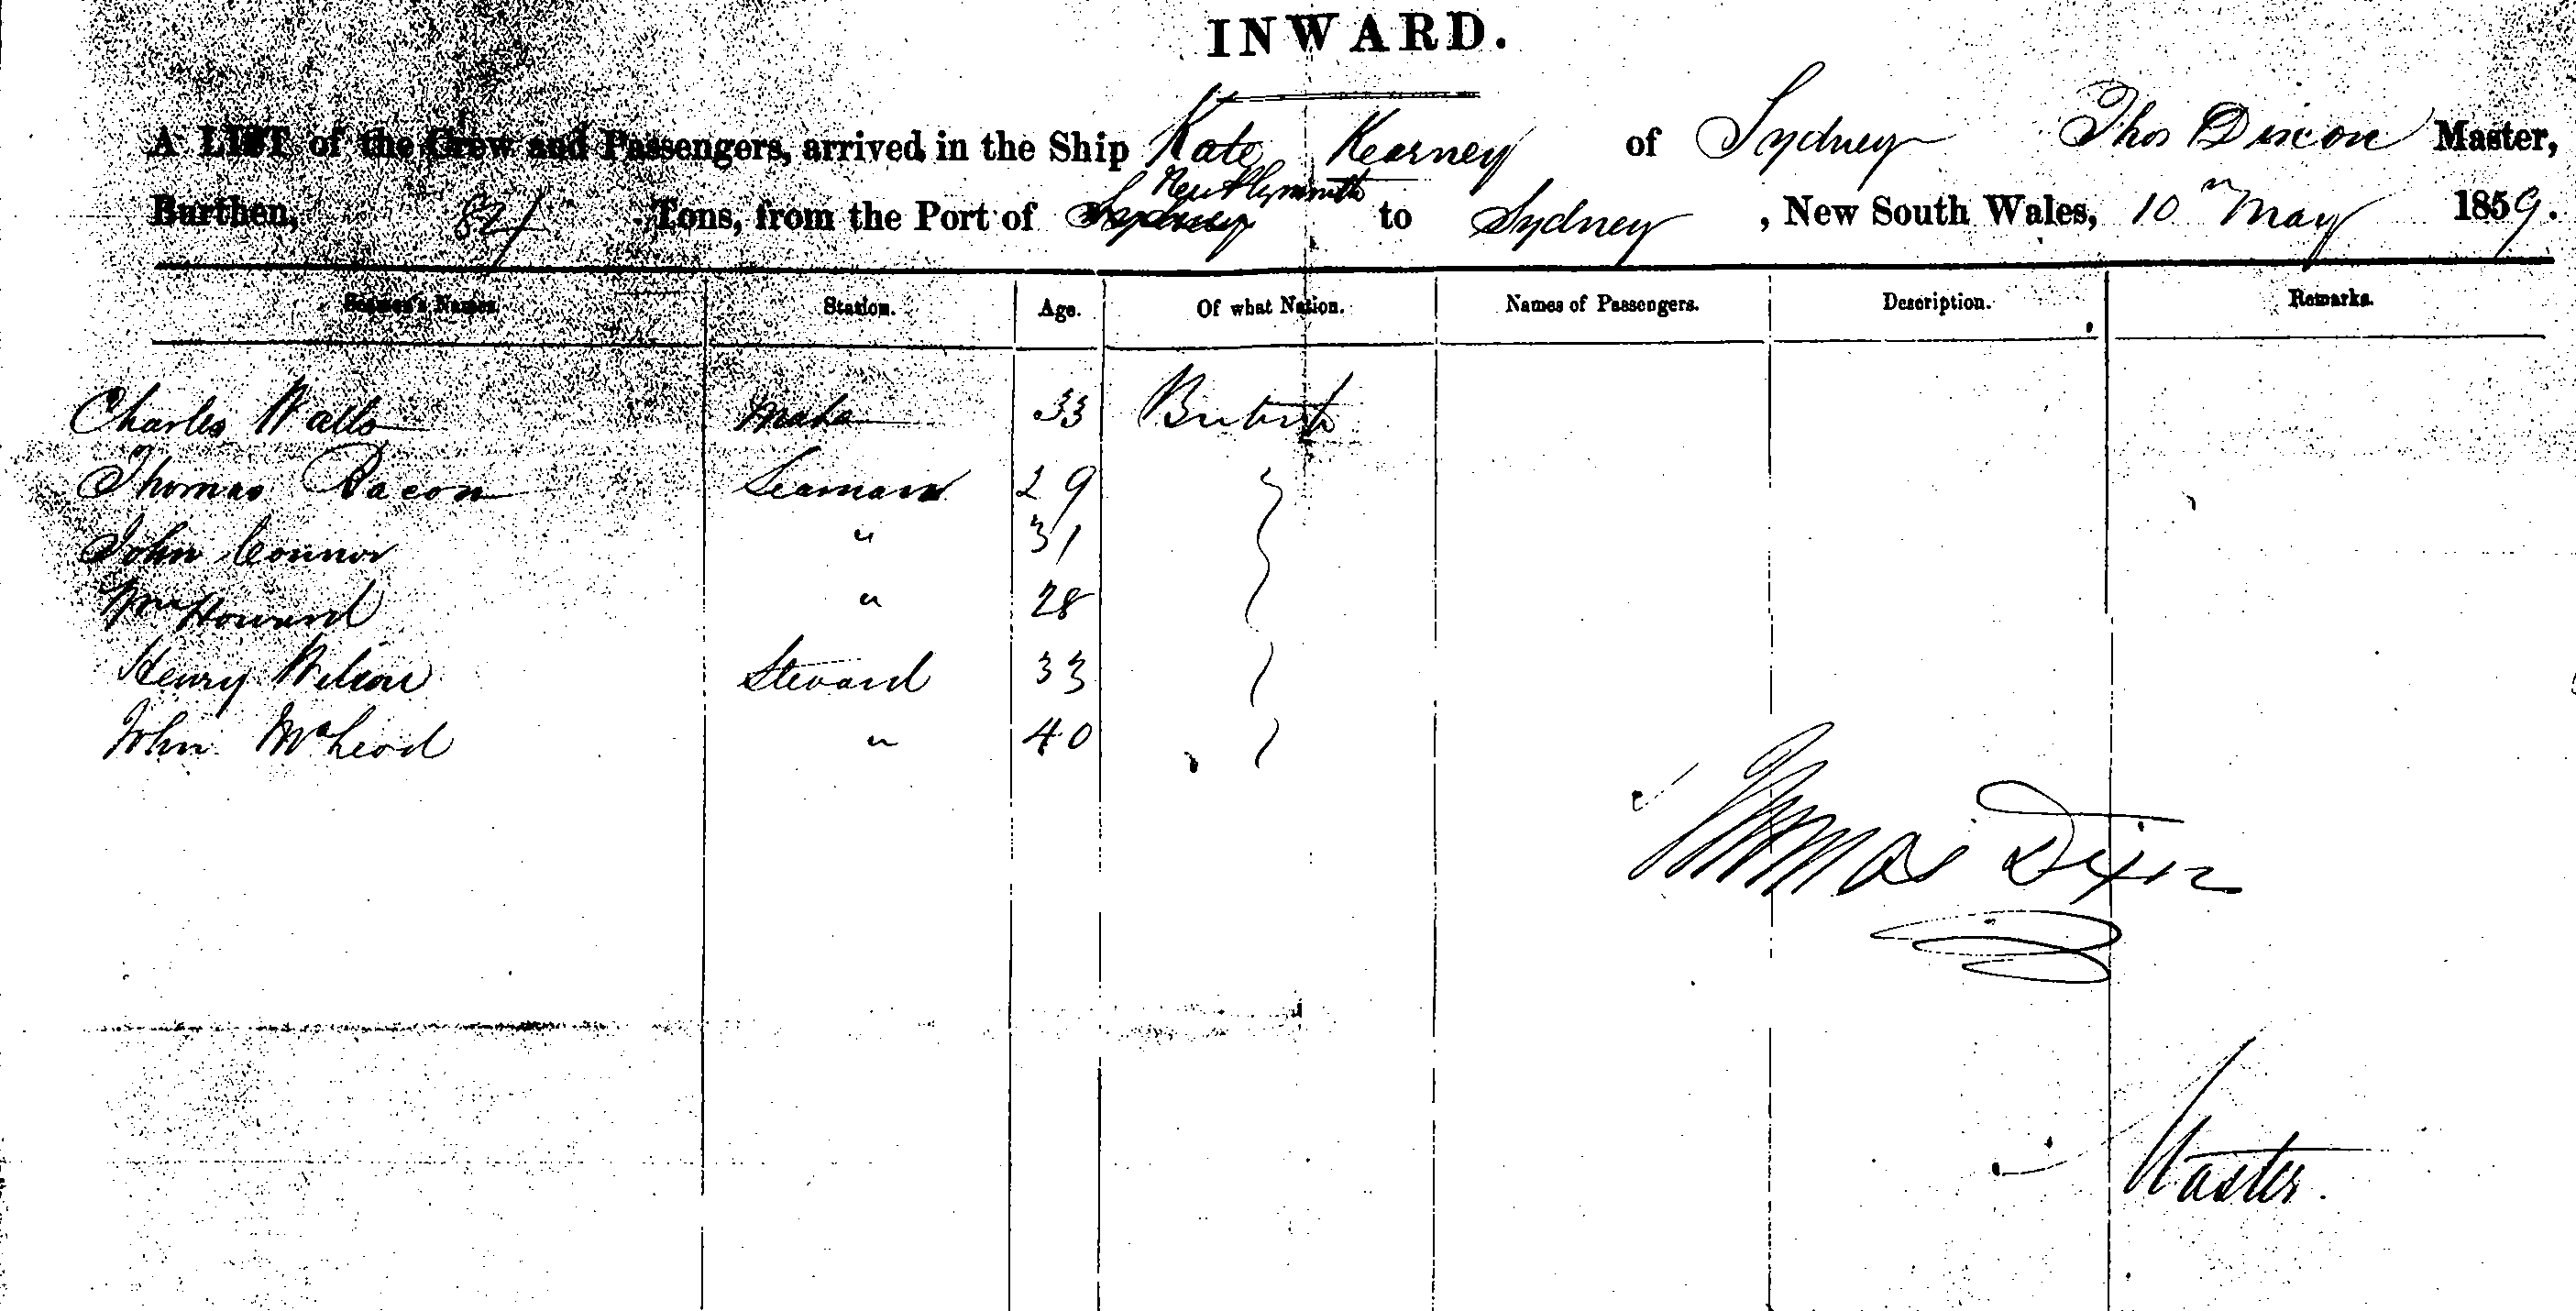 INWARD.
A LIST of the Crew and Passengers, arrived in the Ship Kate Kearney of Sydney Thos Dixon Master,
New Plymouth
Burthen, Tons, from the Port of Sydney to Sydney, New South Wales, 10 May 1859.
Seamen's Names. Station. Age. Of what Nation. Names of Passengers. Description. Remarks.
Charles 33 British
Thomas Bacon Seaman 29
John Connor " 31
Wm Howard " 28
Henry Wilson Steward 33
John McLeod " 40
Thomas Dixon
Master.